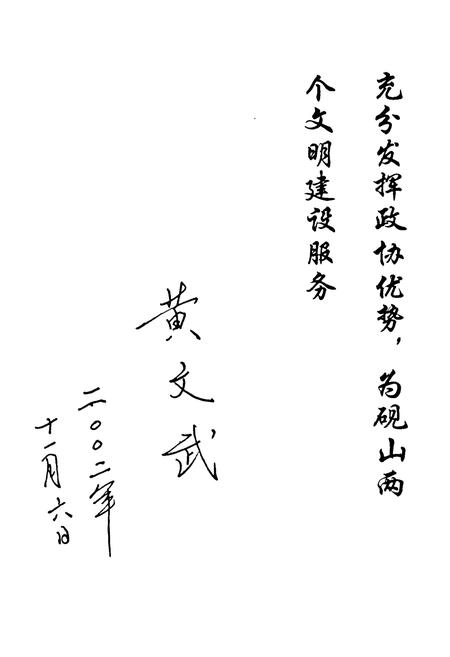 充分发挥政协优势，为砚山两
个文明建设服务
黄文武
二〇〇二年
十一月六日